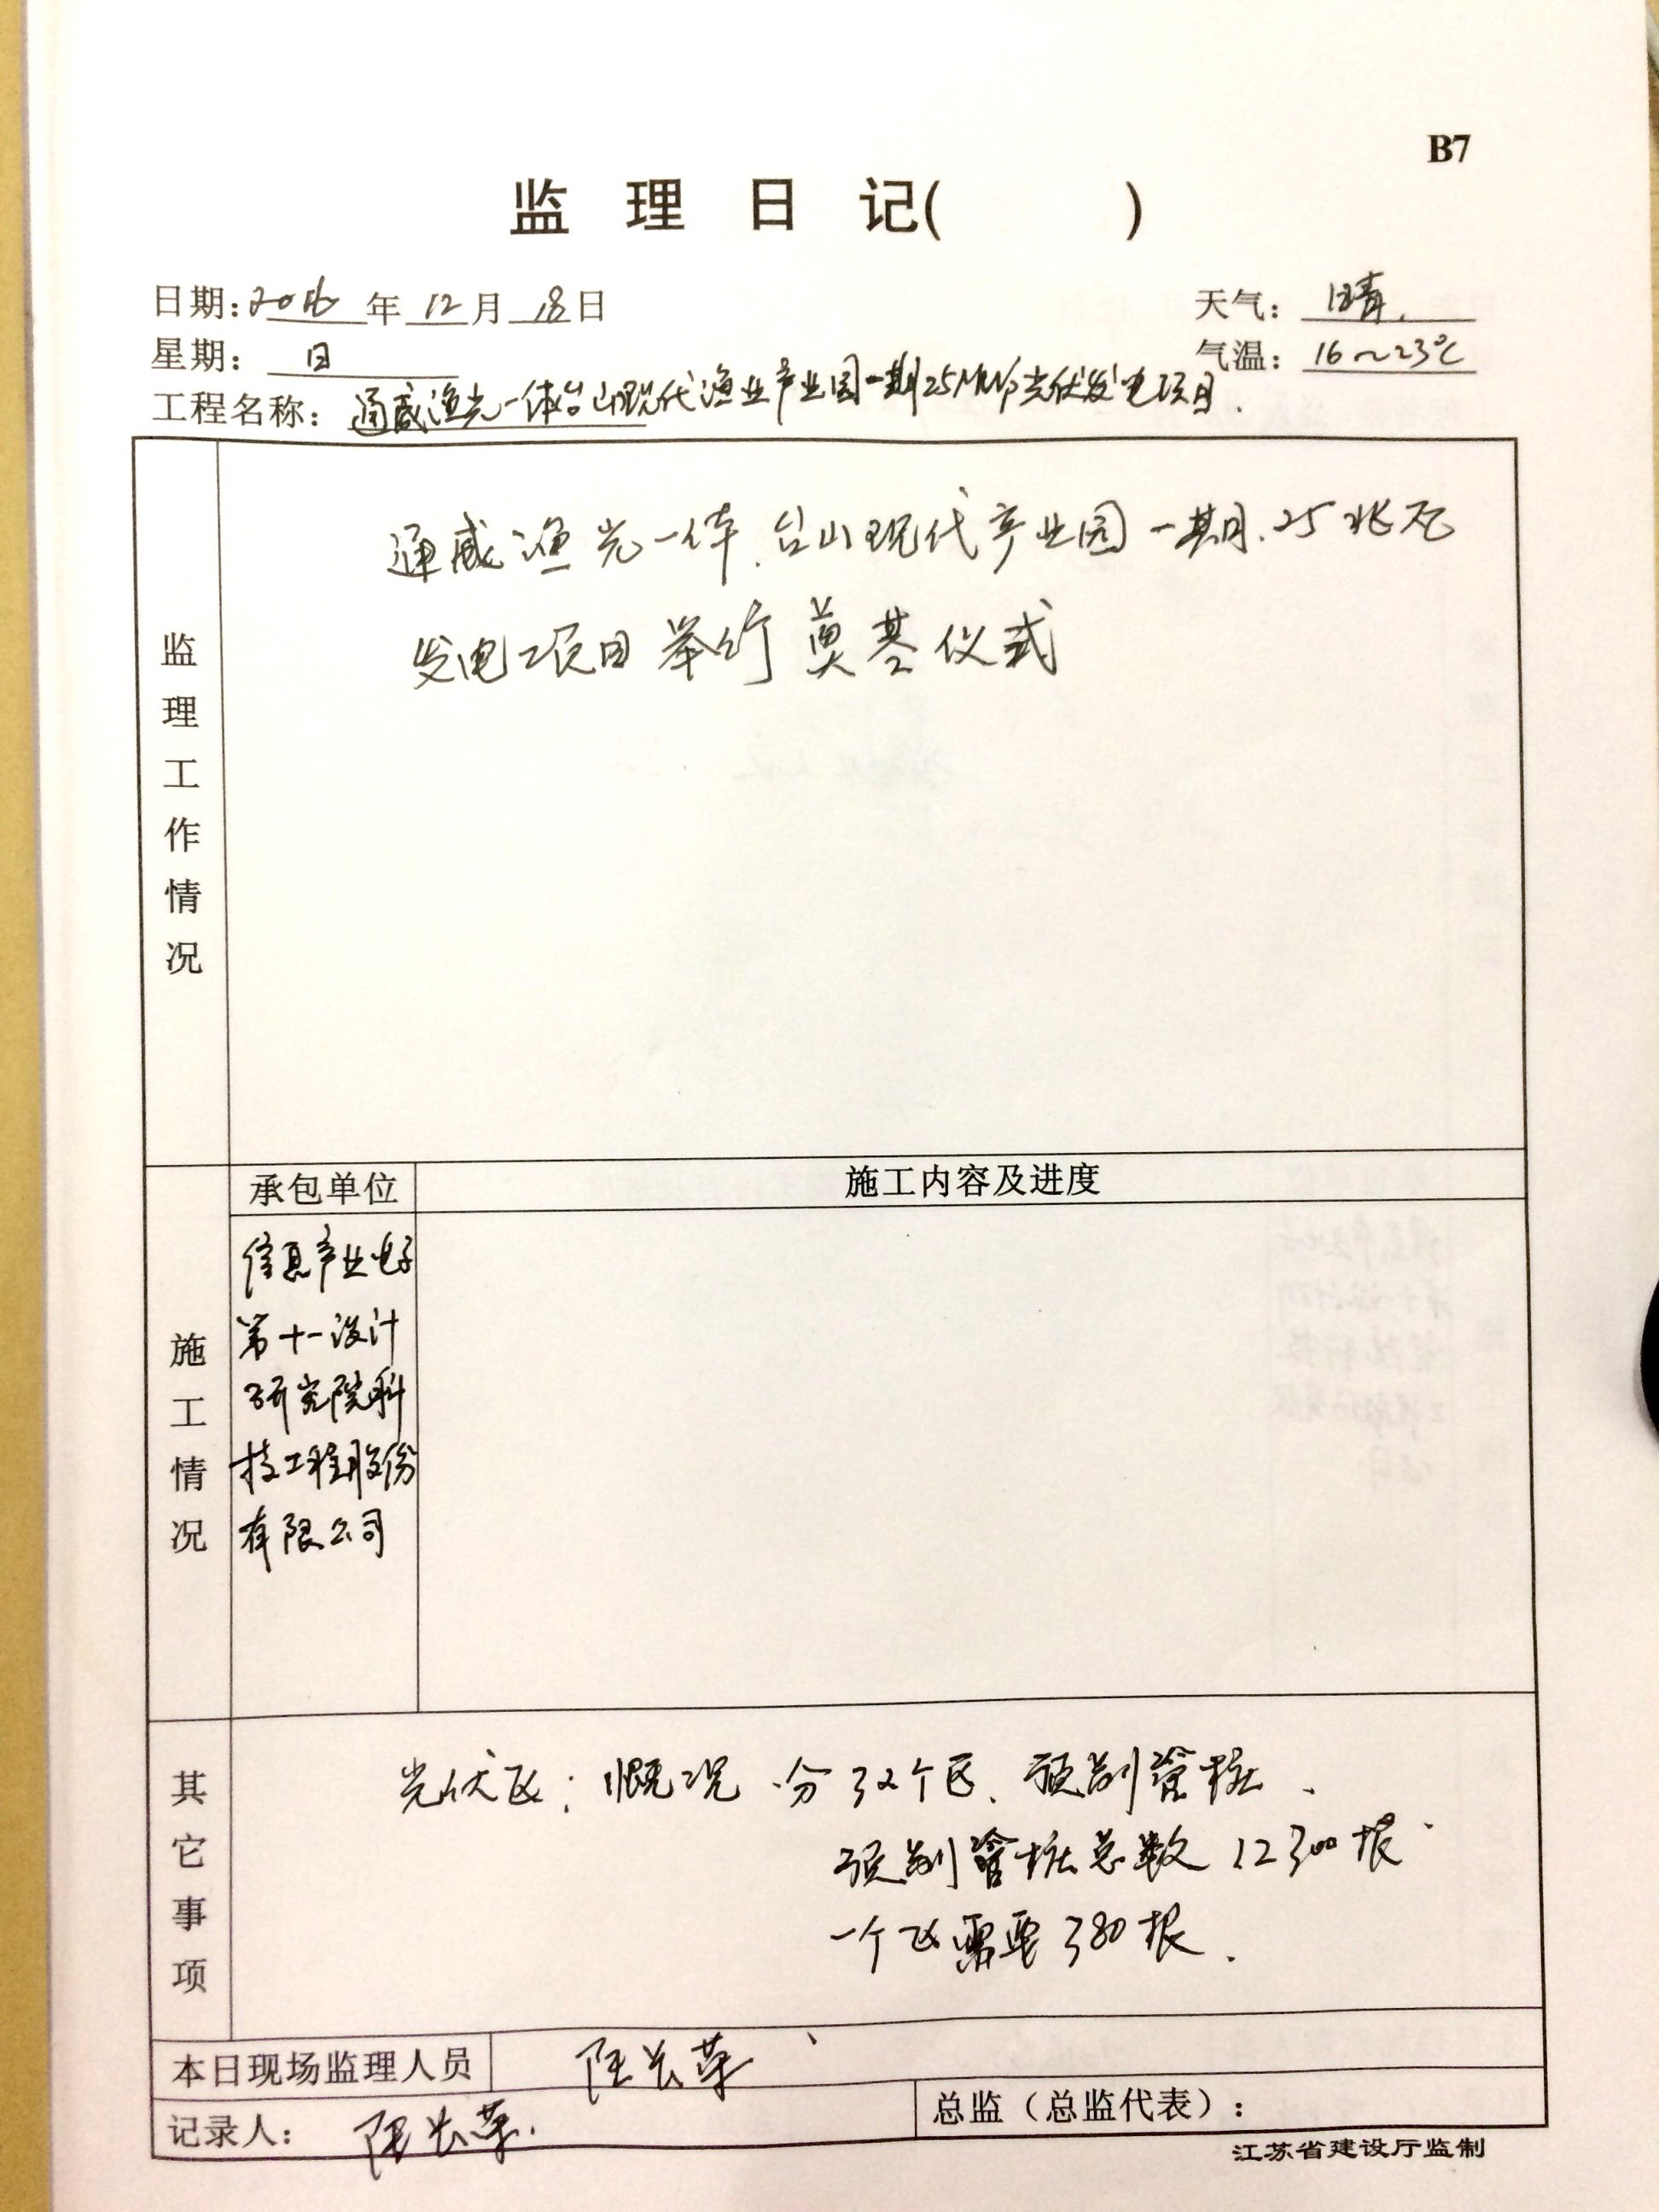 B7
监理日记(        )
日期:2016年12月18日 天气:晴.
星期:日 气温:16～23℃
工程名称:通威渔光一体台山现代渔业产业园一期25MWp光伏发电项目.
监理工作情况
通威渔光一体.台山现代产业园一期.25兆瓦
发电项目举行奠基仪式
承包单位 施工内容及进度
施工情况
信息产业电子
第十一设计
研究院科
技工程股份
有限公司
其它事项
光伏区:概况 分32个区、预制管桩、
预制管桩总数12300根
一个区需要380根.
本日现场监理人员 长荣
记录人: 长荣. 总监（总监代表）:
江苏省建设厅监制